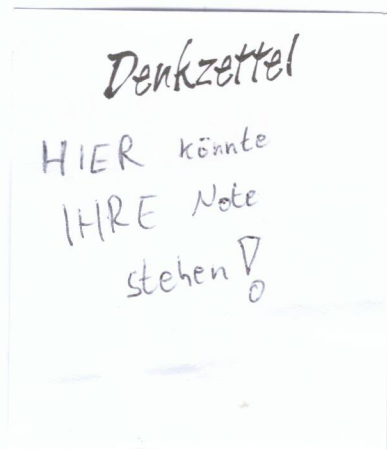 Denkzettel
HIER könnte
IHRE Note
stehen!